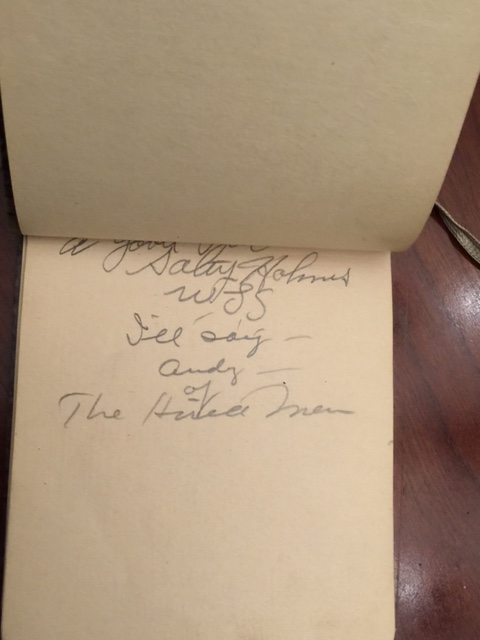 a
Salty Holmes
WLS
I'll say —
Andy —
of
The Hired Men